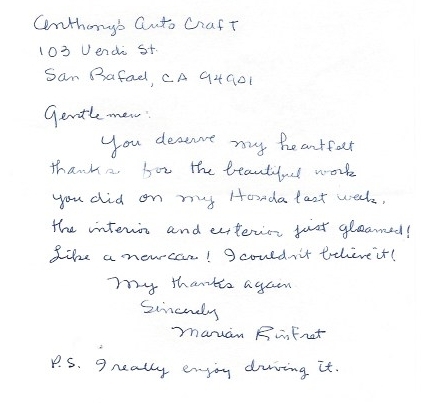 Anthony's Auto Craft
103 Verdi St.
San Rafael, CA 94901
Gentlemen:
You deserve my heartfelt
thanks for the beautiful work
you did on my Honda last week.
The interior and exterior just gleamed!
Like a new car! I couldn't believe it!
My thanks again
Sincerely
Marian Rinfret
P.S. I really enjoy driving it.